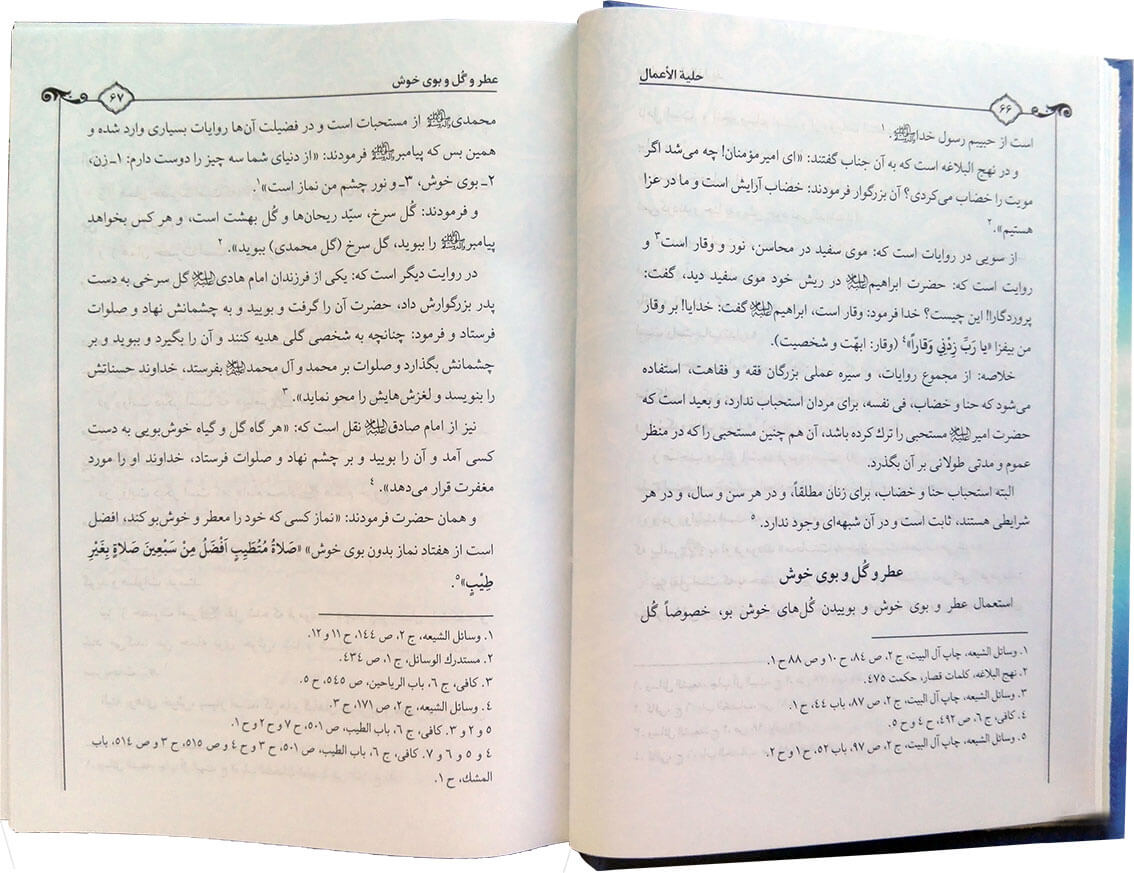 حلیة الأعمال
۶۶
است از حبیبم رسول خداﷺ.۱
و در نهج البلاغه است که به آن جناب گفتند: «ای امیرمؤمنان! چه می‌شد اگر
مویت را خضاب می‌کردی؟ آن بزرگوار فرمودند: خضاب آرایش است و ما در عزا
هستیم».۲
از سویی در روایات است که: موی سفید در محاسن، نور و وقار است۳ و
روایت است که: حضرت ابراهیم در ریش خود موی سفید دید، گفت:
پروردگارا! این چیست؟ خدا فرمود: وقار است، ابراهیم گفت: خدایا! بر وقار
من بیفزا «یا رَبِّ زِدْنِي وَقاراً»۴ (وقار: ابهّت و شخصیت).
خلاصه: از مجموع روایات، و سیره عملی بزرگان فقه و فقاهت، استفاده
می‌شود که حنا و خضاب، فی نفسه، برای مردان استحباب ندارد، و بعید است که
حضرت امیر مستحبی را ترك کرده باشد، آن هم چنین مستحبی را که در منظر
عموم و مدتی طولانی بر آن بگذرد.
البته استحباب حنا و خضاب، برای زنان مطلقاً، و در هر سن و سال، و در هر
شرایطی هستند، ثابت است و در آن شبهه‌ای وجود ندارد.۵
عطر و گُل و بوی خوش
استعمال عطر و بوی خوش و بوییدن گُل‌های خوش بو، خصوصاً گُل
۱. وسائل الشیعه، چاپ آل البیت، ج ۲، ص ۸۴، ح ۱۰ و ص ۸۸ ح ۱.
۲. نهج البلاغه، کلمات قصار، حکمت ۴۷۵.
۳. وسائل الشیعه، چاپ آل البیت، ج ۲، ص ۸۷، باب ۴۴، ح ۱.
۴. کافی، ج ۶، ص ۴۹۲، ح ۴ و ح ۵.
۵. وسائل الشیعه، چاپ آل البیت، ج ۲، ص ۹۷، باب ۵۲، ح ۱ و ح ۲.
عطر و گُل و بوی خوش
۶۷
محمدیﷺ از مستحبات است و در فضیلت آن‌ها روایات بسیاری وارد شده و
همین بس که پیامبرﷺ فرمودند: «از دنیای شما سه چیز را دوست دارم: ۱ـ زن،
۲ـ بوی خوش، ۳ـ و نور چشم من نماز است»۱.
و فرمودند: گُل سرخ، سیّد ریحان‌ها و گُل بهشت است، و هر کس بخواهد
پیامبرﷺ را ببوید، گل سرخ (گل محمدی) ببوید».۲
در روایت دیگر است که: یکی از فرزندان امام هادی گل سرخی به دست
پدر بزرگوارش داد، حضرت آن را گرفت و بویید و به چشمانش نهاد و صلوات
فرستاد و فرمود: چنانچه به شخصی گلی هدیه کنند و آن را بگیرد و ببوید و بر
چشمانش بگذارد و صلوات بر محمد و آل محمد بفرستد، خداوند حسناتش
را بنویسد و لغزش‌هایش را محو نماید».۳
نیز از امام صادق نقل است که: «هر گاه گل و گیاه خوش‌بویی به دست
کسی آمد و آن را بویید و بر چشم نهاد و صلوات فرستاد، خداوند او را مورد
مغفرت قرار می‌دهد».۴
و همان حضرت فرمودند: «نماز کسی که خود را معطر و خوش‌بو کند، افضل
است از هفتاد نماز بدون بوی خوش» «صَلاةُ مُتَطَیِّبٍ اَفْضَلُ مِنْ سَبْعِینَ صَلاةٍ بِغَیْرِ
طِیْبٍ»۵.
۱. وسائل الشیعه، ج ۲، ص ۱۴۴، ح ۱۱ و ۱۲.
۲. مستدرك الوسائل، ج ۱، ص ۴۳۴.
۳. کافی، ج ۶، باب الریاحین، ص ۵۴۵، ح ۵.
۴. وسائل الشیعه، ج ۲، ص ۱۷۱، ح ۳.
۵ و ۲ و ۳. کافی، ج ۶، باب الطیب، ص ۵۰۱، ح ۷ و ح ۲ و ح ۱.
۴ و ۵ و ۶ و ۷. کافی، ج ۶، باب الطیب، ص ۵۰۱، ح ۳ و ح ۴ و ص ۵۱۵، ح ۳ و ص ۵۱۴، باب
المشك، ح ۱.